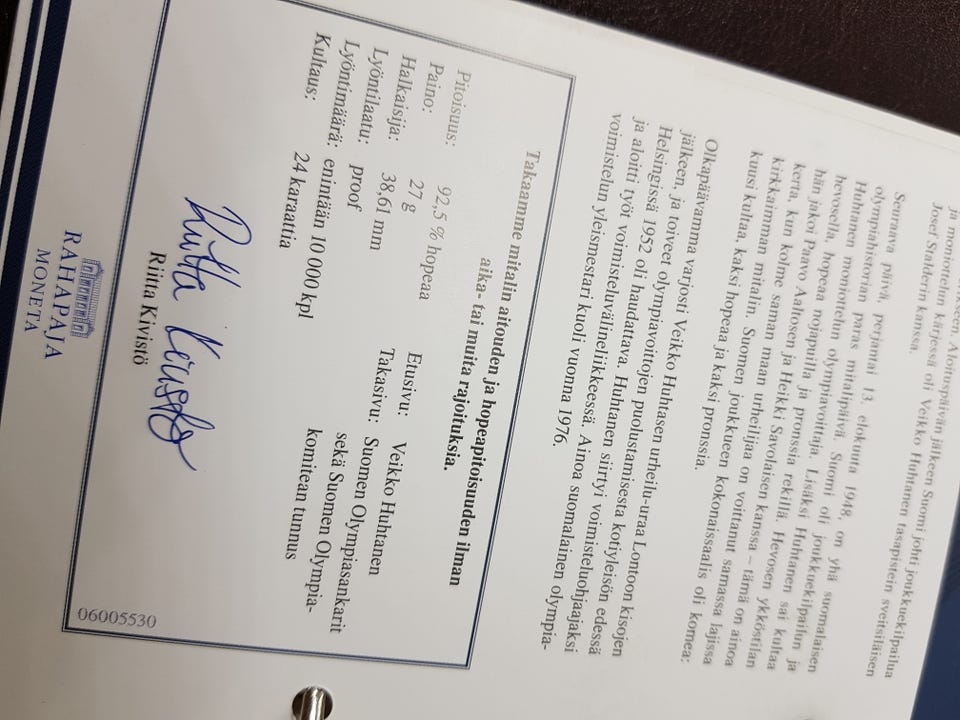 ja moniottelun kärjessä oli Veikko Huhtanen tasapistein sveitsiläisen
Josef Stalderin kanssa.
Seuraava päivä, perjantai 13. elokuuta 1948, on yhä suomalaisen
olympiahistorian paras mitalipäivä. Suomi oli joukkuekilpailun ja
Huhtanen moniottelun olympiavoittaja. Lisäksi Huhtanen sai kultaa
hevosella, hopeaa nojapuilla ja pronssia rekillä. Hevosen ykköstilan
hän jakoi Paavo Aaltosen ja Heikki Savolaisen kanssa – tämä on ainoa
kerta, kun kolme saman maan urheilijaa on voittanut samassa lajissa
kirkkaimman mitalin. Suomen joukkueen kokonaissaalis oli komea:
kuusi kultaa, kaksi hopeaa ja kaksi pronssia.
Olkapäävamma varjosti Veikko Huhtasen urheilu-uraa Lontoon kisojen
jälkeen, ja toiveet olympiavoittojen puolustamisesta kotiyleisön edessä
Helsingissä 1952 oli haudattava. Huhtanen siirtyi voimisteluohjaajaksi
ja aloitti työt voimisteluvälineliikkeessä. Ainoa suomalainen olympia-
voimistelun yleismestari kuoli vuonna 1976.
Takaamme mitalin aitouden ja hopeapitoisuuden ilman
aika- tai muita rajoituksia.
Pitoisuus: 92,5 % hopeaa
Paino: 27 g
Halkaisija: 38,61 mm
Lyöntilaatu: proof
Lyöntimäärä: enintään 10 000 kpl
Kultaus: 24 karaattia
Etusivu: Veikko Huhtanen
Takasivu: Suomen Olympiasankarit
sekä Suomen Olympia-
komitean tunnus
Riitta Kivistö
RAHAPAJA
MONETA
06005530